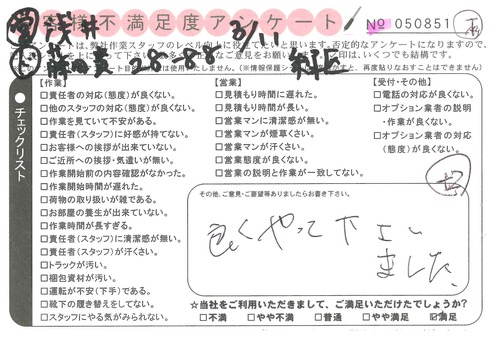 お客様不満足度アンケート
№ 050851
3/11
アンケートは、弊社作業スタッフのレベル向上に役立てたいと思います。否定的なアンケートになりますので、
【作業】
□責任者の対応(態度)が良くない。
□他のスタッフの対応(態度)が良くない。
□作業を見ていて不安がある。
□責任者(スタッフ)に好感が持てない。
□お客様への挨拶が出来ていない。
□ご近所への挨拶・気遣いが無い。
□作業開始前の内容確認がなかった。
□作業開始時間が遅れた。
□荷物の取り扱いが雑である。
□お部屋の養生が出来ていない。
□作業時間が長すぎる。
□責任者(スタッフ)に清潔感が無い。
□責任者(スタッフ)が汗くさい。
□トラックが汚い。
□梱包資材が汚い。
□運転が不安(下手)である。
□靴下の履き替えをしてない。
□スタッフにやる気がみられない。
【営業】
□見積もり時間に遅れた。
□見積もり時間が長い。
□営業マンに清潔感が無い。
□営業マンが煙草くさい。
□営業マンが汗くさい。
□営業態度が良くない。
□営業の説明と作業が一致してない。
【受付・その他】
□電話の対応が良くない。
□オプション業者の説明
・作業が良くない。
□オプション業者の対応
(態度)が良くない。
チェックリスト
その他、ご意見・ご要望等ありましたらお書き下さい。
良くやって下さい
ました。
☆当社をご利用いただきまして、ご満足いただけたでしょうか?
□不満 □やや不満 □普通 □やや満足 ☑満足